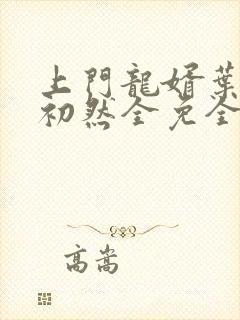 上門龍婿葉
初然全免全
高嵩